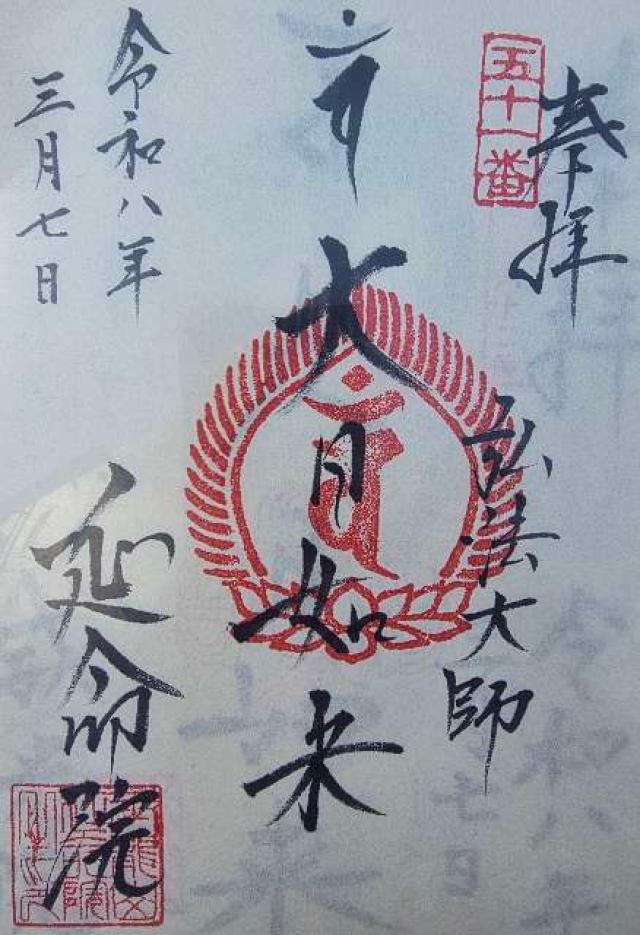 五十一番
奉拝
弘法大師
大日如来
令和八年
三月七日
延命院